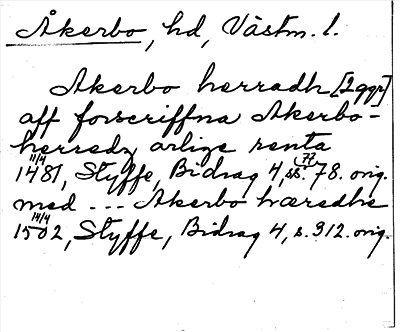 Åkerbo, hd, Västm. l.
Akerbo herradh [2 ggr]
aff forscriffna Akerbo-
herredz arlige renta
11/4 1481, Styffe, Bidrag 4, s. 77, 78. orig.
med ... Akerbo hæredhe
14/4 1502, Styffe, Bidrag 4, s. 312. orig.